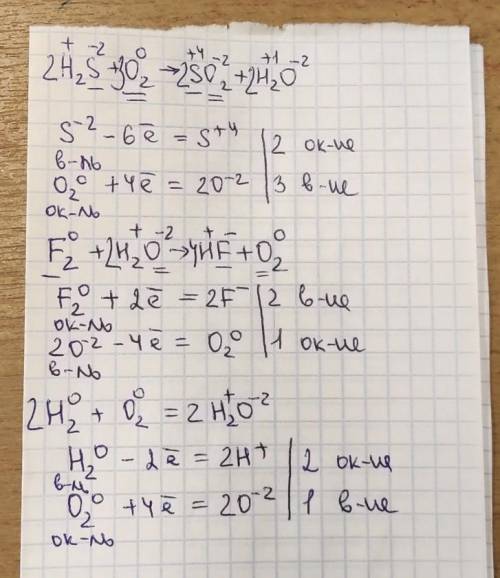 2H₂⁺S⁻²+3O₂⁰→2S⁺⁴O₂⁻²+2H₂⁺¹O⁻²
S⁻² - 6ē = S⁺⁴ | 2 ок-ие
в-ль
O₂⁰ + 4ē = 2O⁻² | 3 в-ие
ок-ль
F₂⁰ + 2H₂⁺O⁻²→4H⁺F⁻ + O₂⁰
F₂⁰ + 2ē = 2F⁻ | 2 в-ие
ок-ль
2O⁻² - 4ē = O₂⁰ | 1 ок-ие
в-ль
2H₂⁰ + O₂⁰ = 2H₂⁺O⁻²
H₂⁰ - 2ē = 2H⁺ | 2 ок-ие
в-ль
O₂⁰ + 4ē = 2O⁻² | 1 в-ие
ок-ль